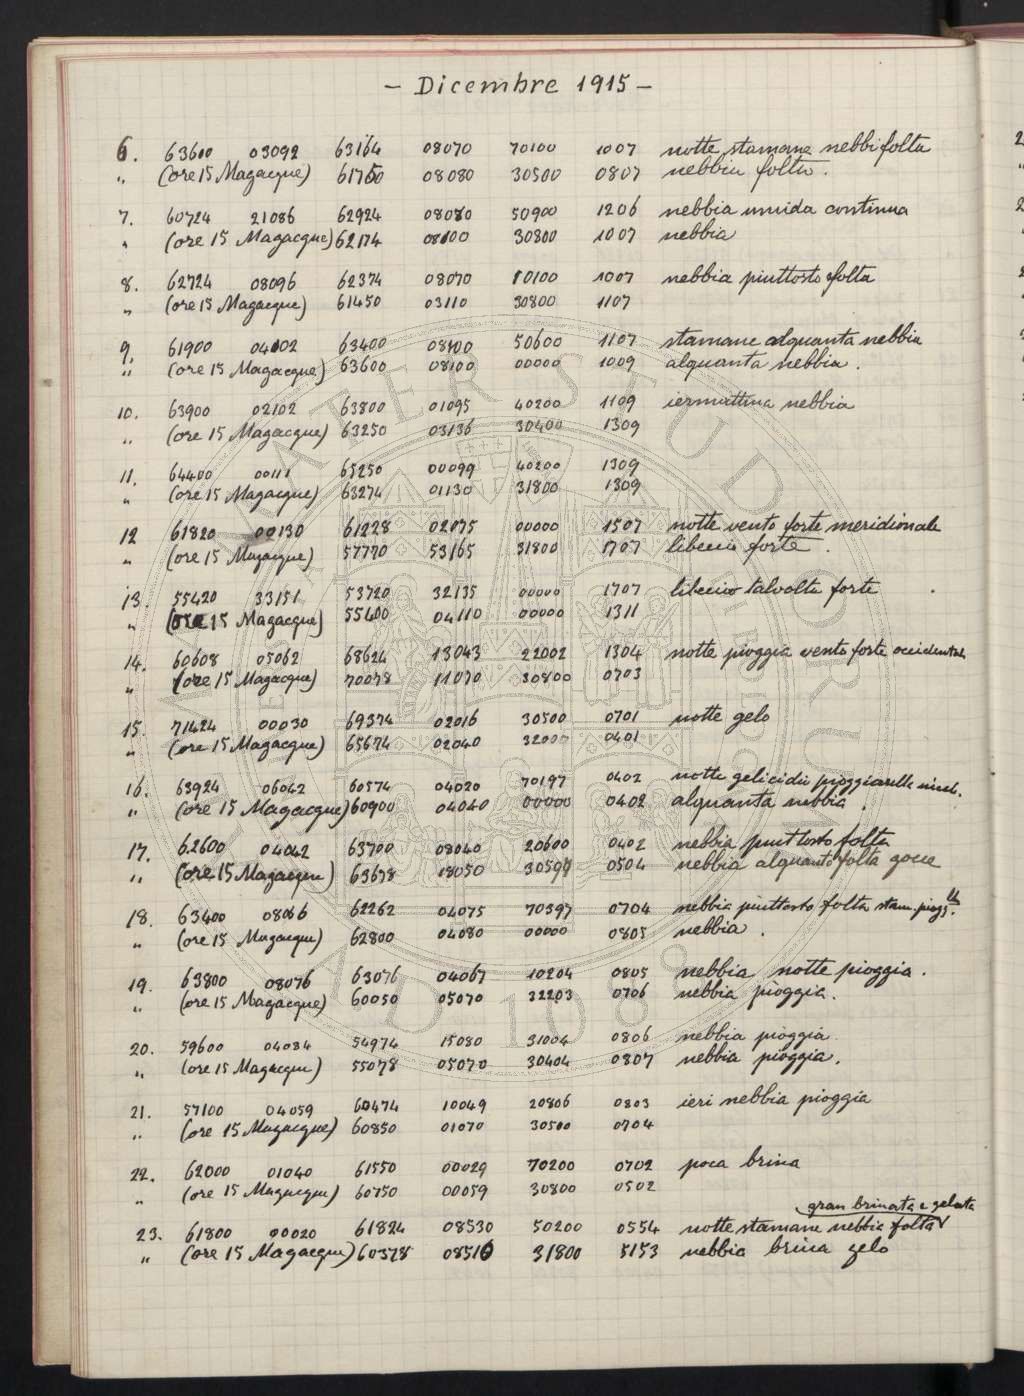 - Dicembre 1915 -
6. 63600 03092 63164 08070 70100 1007 notte stamane nebbi folta
" (ore 15 Magacque) 61750 08080 30500 0807 nebbia folta.
7. 60724 21086 62924 08080 50900 1206 nebbia umida continua
" (ore 15 Magacque) 62174 08100 30800 1007 nebbia
8. 62724 08096 62374 08070 10100 1007 nebbia piuttosto folta
" (ore 15 Magacque) 61450 03110 30800 1107
9. 61900 04102 63400 08100 50600 1107 stamane alquanta nebbia
" (ore 15 Magacque) 63600 08100 00000 1009 alquanta nebbia.
10. 63900 02102 63800 01095 40200 1109 iermattina nebbia
" (ore 15 Magacque) 63250 03136 30400 1309
11. 64400 00111 65250 00099 40200 1309
" (ore 15 Magacque) 63274 01130 31800 1309
12 61820 00130 61228 02175 00000 1507 notte vento forte meridionale
" (ore 15 Magacque) 57770 53165 31800 1707 libeccio forte.
13. 55420 33151 53720 32135 00000 1707 libeccio talvolta forte
" (ore 15 Magacque) 55400 04110 00000 1311
14. 60608 05062 68624 13043 22002 1304 notte pioggia vento forte occidentale
" (ore 15 Magacque) 70078 11070 30800 0703
15. 71424 00030 69374 02016 30500 0701 notte gelo
" (ore 15 Magacque) 65674 02040 32000 0401
16. 63924 06042 60574 04020 70197 0402 notte gelicidii pioggiarelle
" (ore 15 Magacque) 60900 04040 00000 0402 alquanta nebbia.
17. 62600 04042 63700 08040 20600 0402 nebbia piuttosto folta
" (ore 15 Magacque) 63678 18050 30599 0504 nebbia alquanto folta gocce
18. 63400 08066 62262 04075 70397 0704 nebbia piuttosto folta stam. piogg.lla
" (ore 15 Magacque) 62800 04080 00000 0805 nebbia.
19. 63800 08076 63076 04067 10204 0805 nebbia notte pioggia.
" (ore 15 Magacque) 60050 05070 32203 0706 nebbia pioggia.
20. 59600 04084 54974 15080 31004 0806 nebbia pioggia
" (ore 15 Magacque) 55078 05070 30404 0807 nebbia pioggia.
21. 57100 04059 60474 10049 20806 0803 ieri nebbia pioggia
" (ore 15 Magacque) 60850 01070 30500 0704
22. 62000 01040 61550 00029 70200 0702 poca brina
" (ore 15 Magacque) 60750 00059 30800 0502
gran brinata e gelata
23. 61800 00020 61824 08530 50200 0554 notte stamane nebbia folta
" (ore 15 Magacque) 60378 08516 31800 5153 nebbia brina gelo
ALMA MATER STUDIORUM
A.D. 1088